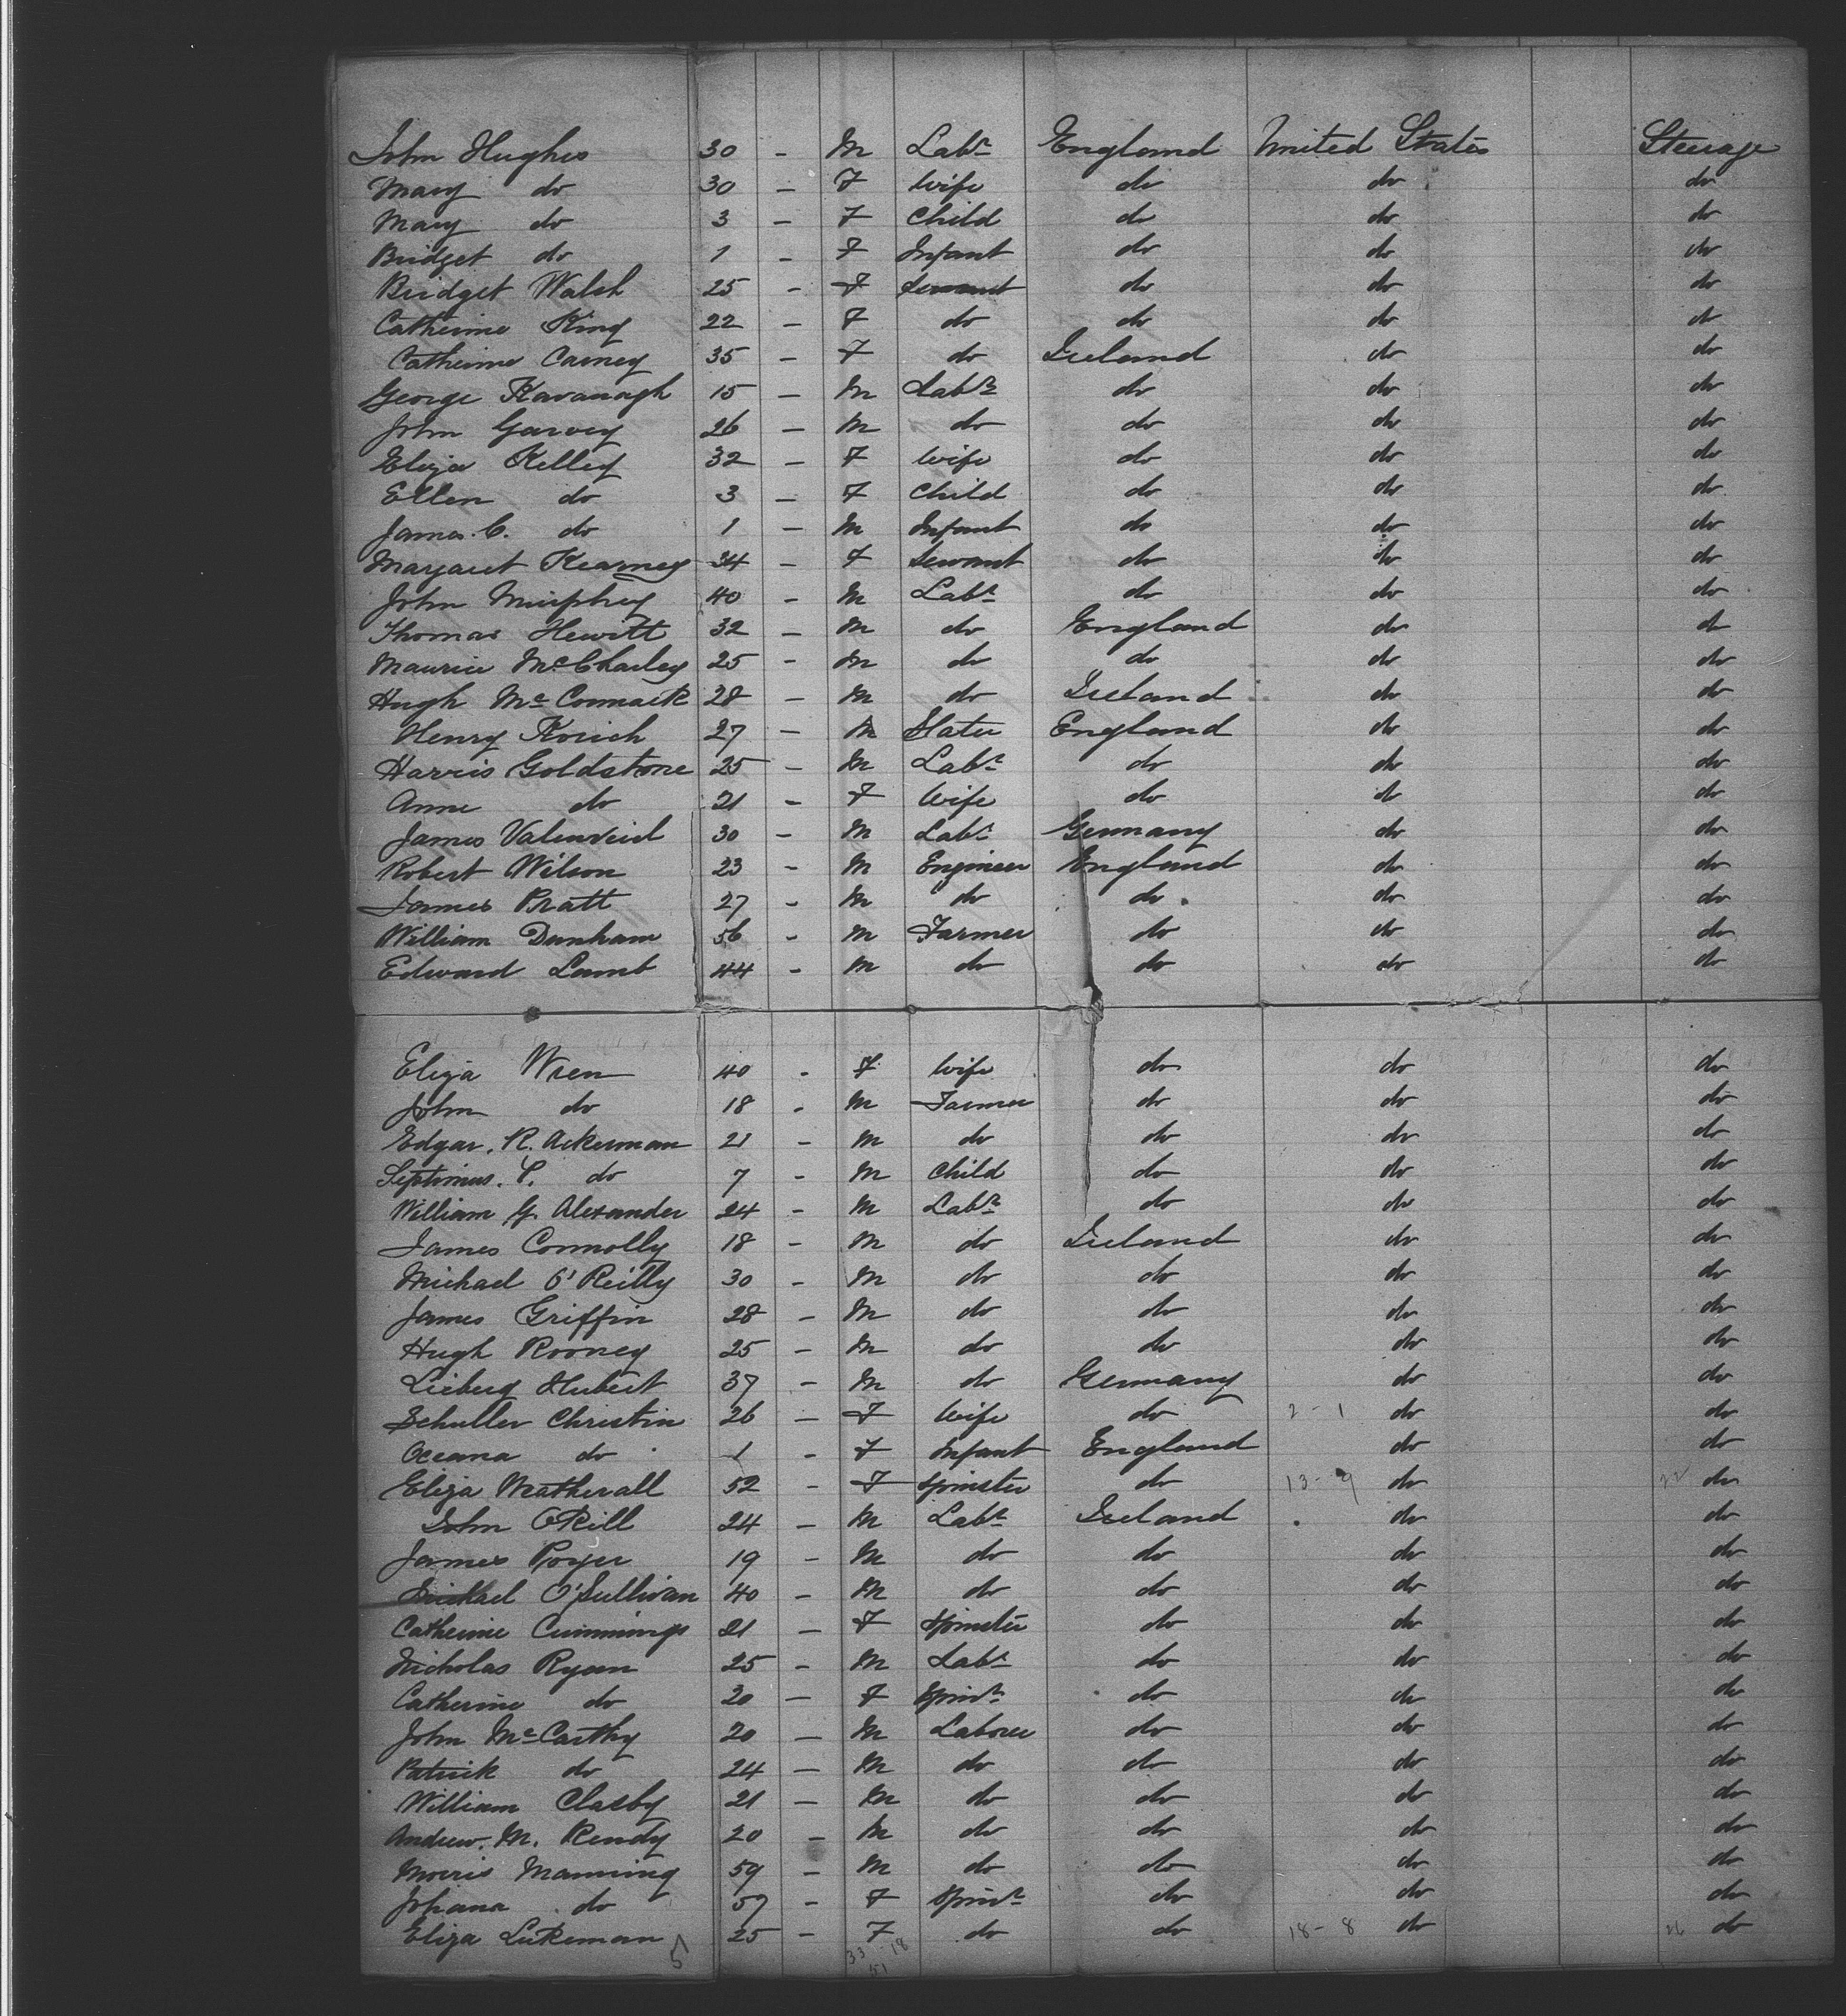 John Hughes 30 - M Labr England United States Steerage
Mary do 30 - F Wife do do do
Mary do 3 - F Child do do do
Bridget do 1 - F Infant do do do
Bridget Walsh 25 - F Servant do do do
Catherine King 22 - F do do do do
Catherine Carney 35 - F do Ireland do do
George Kavanagh 15 - M Labr do do do
John Garvey 26 - M do do do do
Eliza Kelley 32 - F Wife do do do
Ellen do 3 - F Child do do do
James. C. do 1 - M Infant do do do
Margaret Kearney 34 - F Servant do do do
John Murphey 40 - M Labr do do do
Thomas Hewitt 32 - M do England do do
Maurice McCharley 25 - M do do do do
Hugh McCormack 28 - M do Ireland do do
Henry 27 - M Slater England do do
Harris Goldstone 25 - M Labr do do do
Anne do 21 - F Wife do do do
James 30 - M Labr Germany do do
Robert Wilson 23 - M Engineer England do do
James Pratt 27 - M do do do do
William Dunham 56 - M Farmer do do do
Edward Lamb 44 - M do do do do
Eliza Wren 40 - F Wife do do do
John do 18 - M Farmer do do do
Edgar. R. Ackerman 21 - M do do do do
Septimus. P. do 7 - M Child do do do
William G. Alexander 24 - M Labr do do do
James Connolly 18 - M do Ireland do do
Michael O'Reilly 30 - M do do do do
James Griffin 28 - M do do do do
Hugh Rooney 25 - M do do do do
Lieberg Hubert 37 - M do Germany do do
Schuller Christin 26 - F Wife do 2 - 1 do do
Oceana do 1 - F Infant England do do
Eliza Weatherall 52 - F Spinster do 13 - 9 do 22 do
John O'Rill 24 - M Labr Ireland do do
James Royer 19 - M do do do do
Michael O'Sullivan 40 - M do do do do
Catherine Cummings 21 - F Spinster do do do
Nicholas Ryan 25 - M Labr do do do
Catherine do 20 - F Spinr do do do
John McCarthy 20 - M Laborer do do do
Patrick do 24 - M do do do do
William Clasby 21 - M do do do do
Andrew. M. Rendy 20 - M do do do do
Morris Manning 59 - M do do do do
Johana do 57 - F Spinr do do do
Eliza Lukeman 25 - F do do 18 - 8 do 26 do
51 33 - 18
51